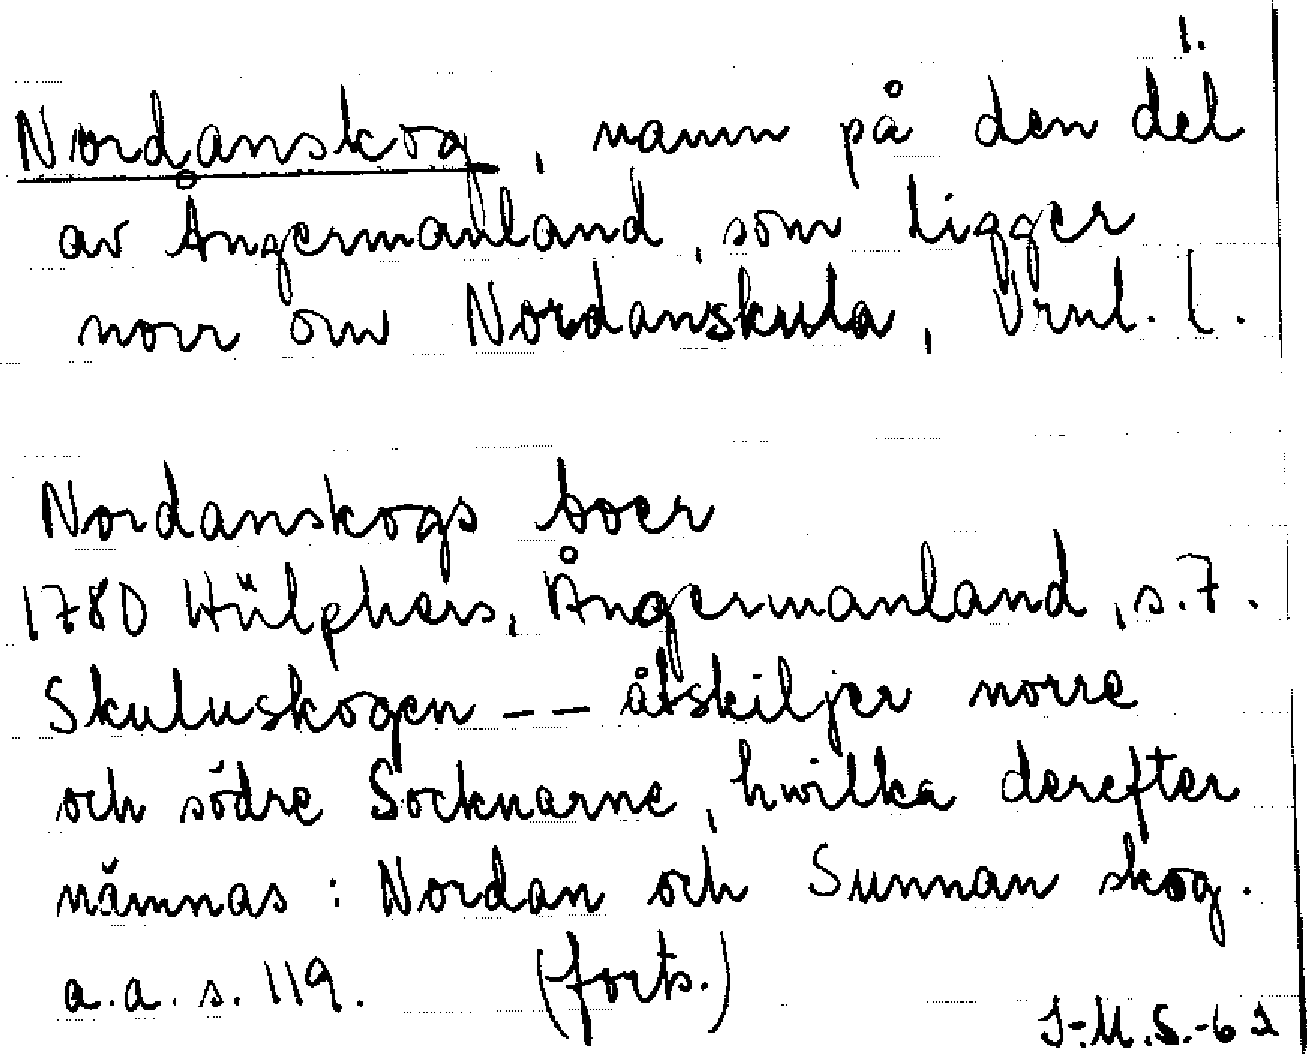 1.
Nordanskog, namn på den del
av Ångermanland, som ligger
norr om Nordanskula, Vrnl. l.
Nordanskogs boer
1780 Hülphers, Ångermanland, s. 7.
Skuluskogen -- åtskiljer norre
och södre Socknarne, hwilka derefter
nämnas: Nordan och Sunnan skog.
a.a. s. 119. (forts.)
J-M.S.-61